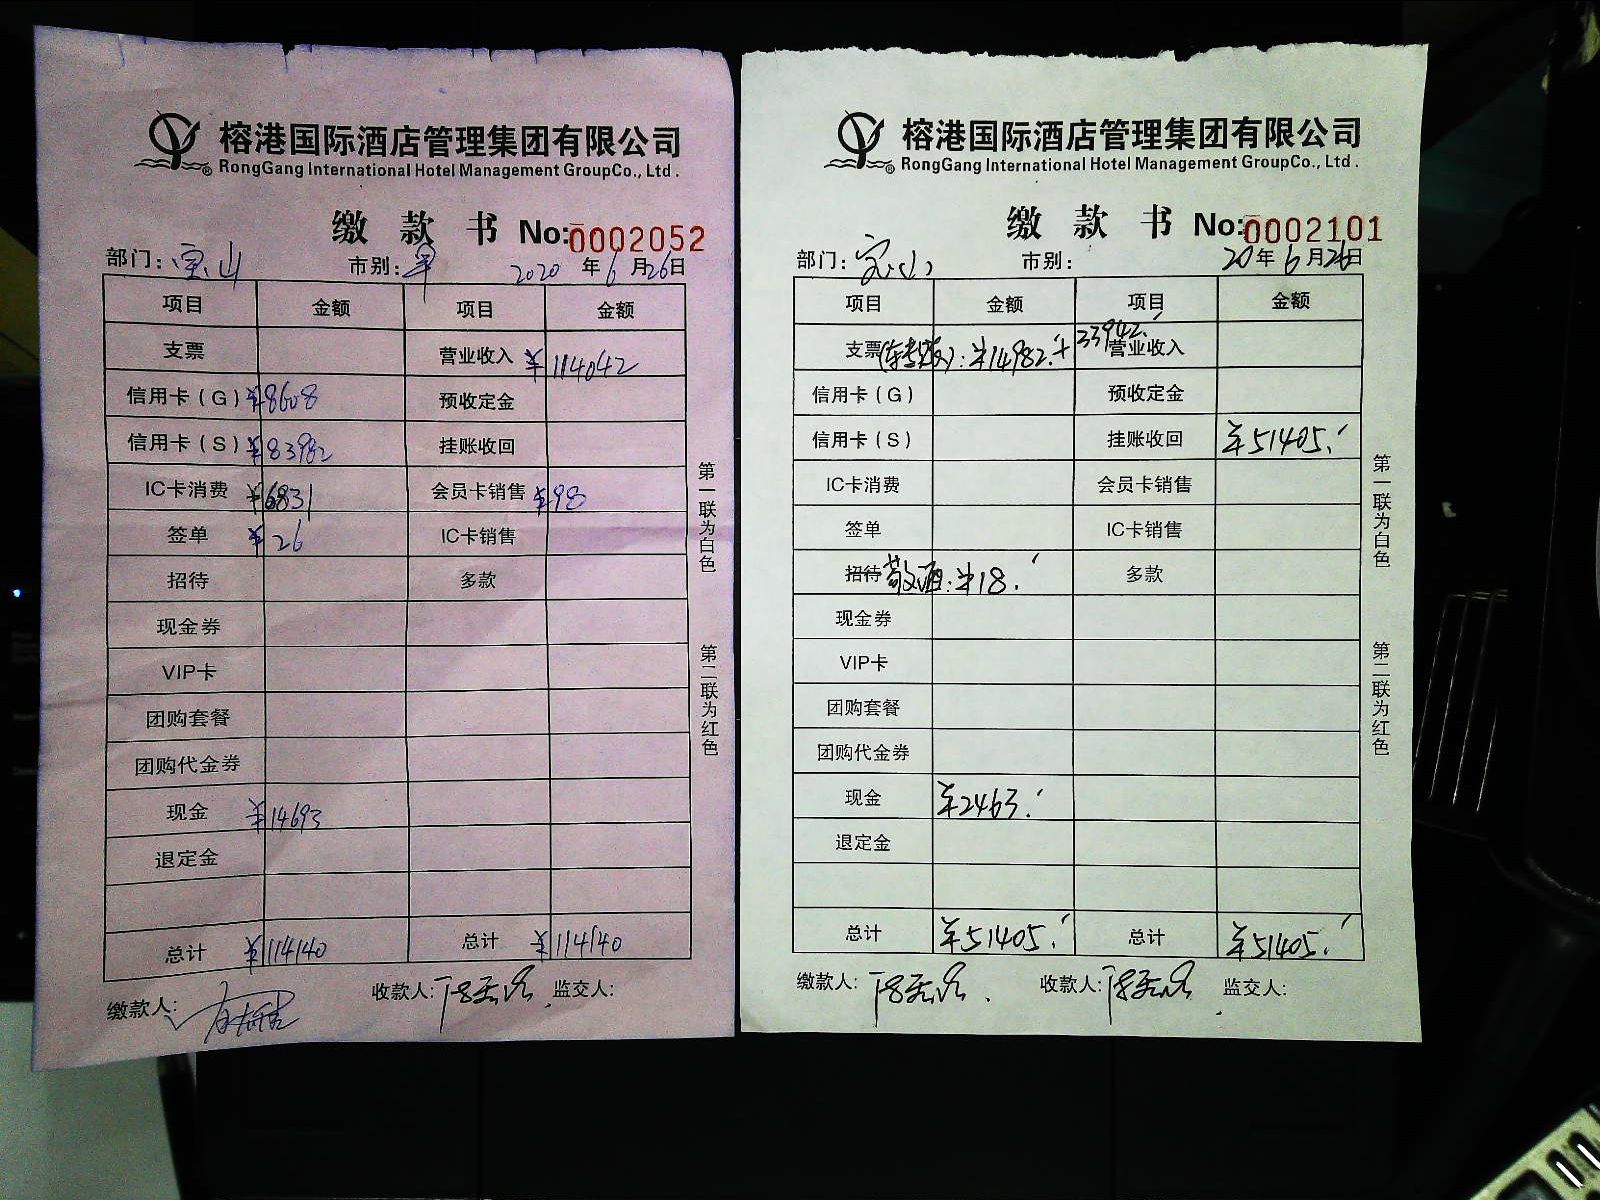 榕港国际酒店管理集团有限公司
RongGang International Hotel Management GroupCo., Ltd.
缴款书 No:0002052
部门: 宝山 市别: 早 2020年6月26日
项目 金额 项目 金额
支票 营业收入 ¥114042
信用卡(G) ¥8608 预收定金
信用卡(S) ¥83982 挂账收回
IC卡消费 ¥6831 会员卡销售 ¥98
签单 ¥26 IC卡销售
招待 多款
现金券
VIP卡
团购套餐
团购代金券
现金 ¥14693
退定金
总计 ¥114140 总计 ¥114140
缴款人: 收款人: 监交人:
第一联为白色
第二联为红色
榕港国际酒店管理集团有限公司
RongGang International Hotel Management GroupCo., Ltd.
缴款书 No:0002101
部门: 宝山 市别: 20年6月26日
项目 金额 项目 金额
支票 : ¥14982.+33942. 营业收入
信用卡(G) 预收定金
信用卡(S) 挂账收回 ¥51405.
IC卡消费 会员卡销售
签单 IC卡销售
招待 敬酒: ¥18. 多款
现金券
VIP卡
团购套餐
团购代金券
现金 ¥2463.
退定金
总计 ¥51405. 总计 ¥51405.
缴款人: 收款人: 监交人:
第一联为白色
第二联为红色